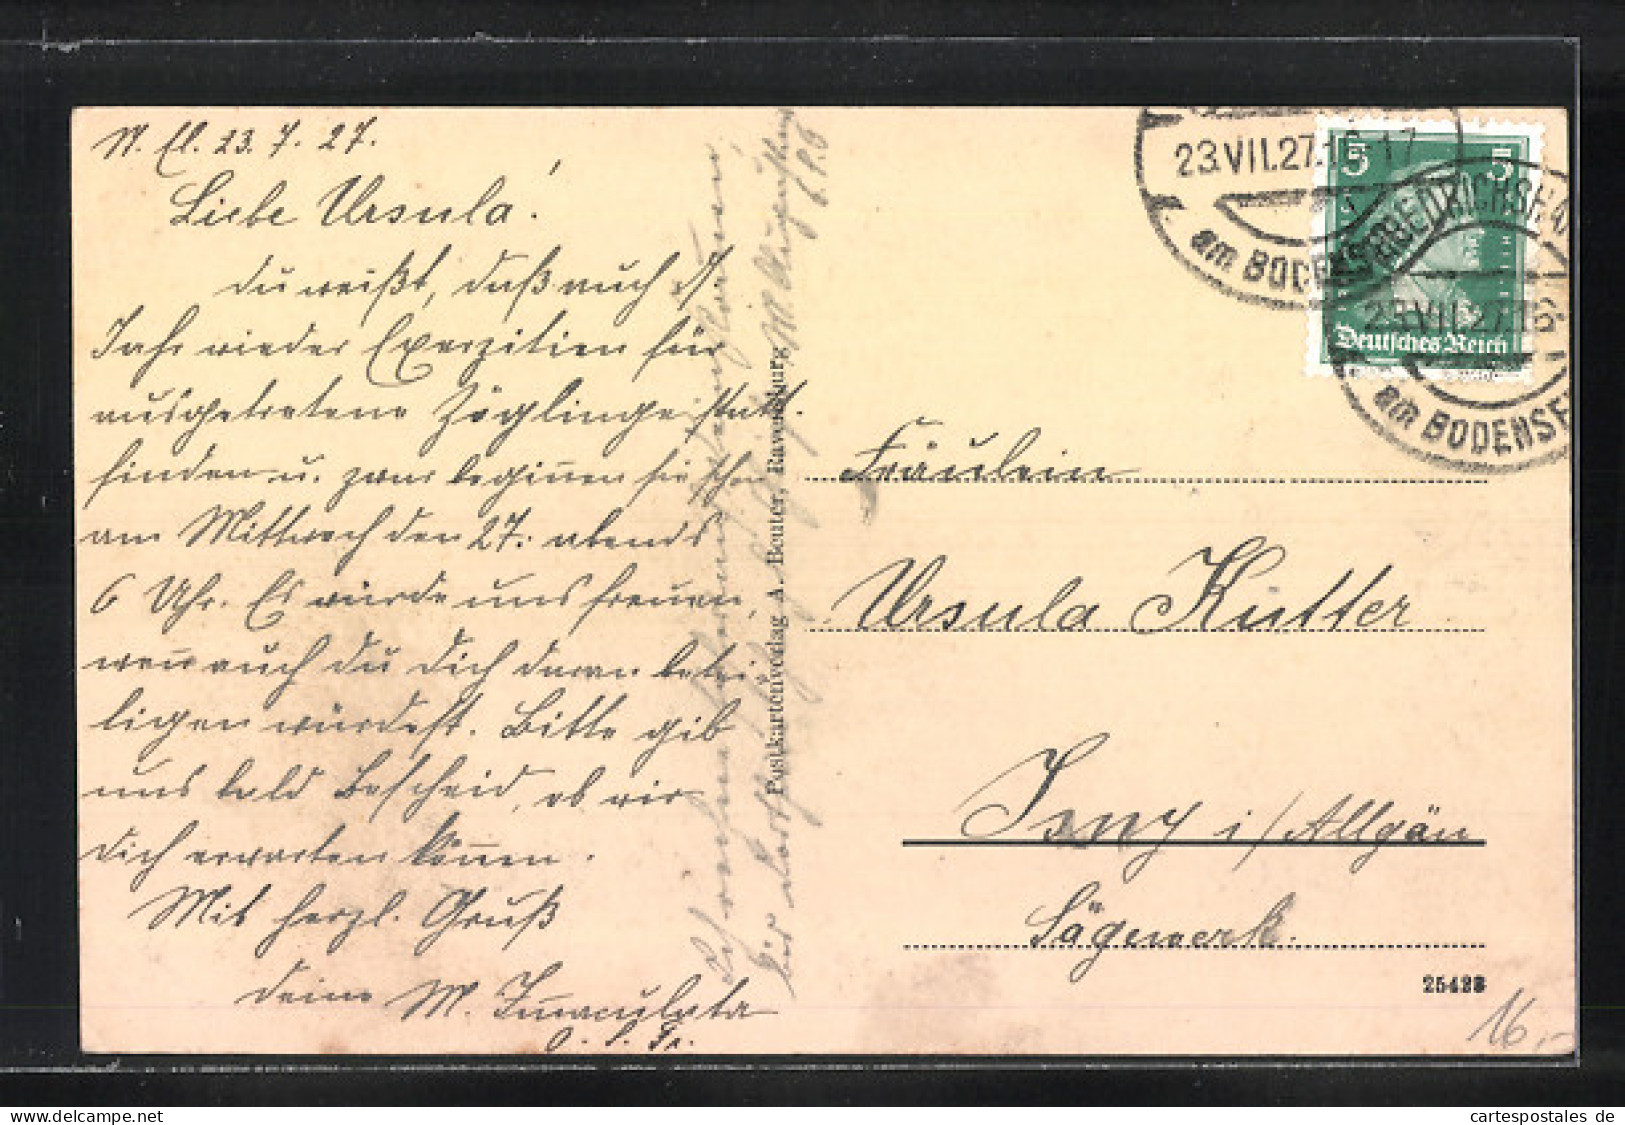 23. 7. 27.
Liebe Ursula!
Du weißt, daß auch ds.
Jahr wieder Exerzitien für
ausgetretene Zöglinge statt-
finden u. zwar beginnen sie schon
am Mittwoch den 27. abends
6 Uhr. Es würde uns freuen,
wenn auch Du Dich daran betei-
ligen würdest. Bitte gib
uns bald Bescheid, ob wir
Dich erwarten können.
Mit herzl. Gruß
Deine M. Immaculata
Postkartenverlag A. Beuter, Ravensburg
23.VII.27.16-17
am BODENSEE
5 5
Deutsches Reich
FRIEDRICHSHA
23.VII.27.16
am BODENSEE
Fräulein
Ursula Kutter
Isny i/Allgäu
Sägewerk.
25423
16,-
cartespostales de